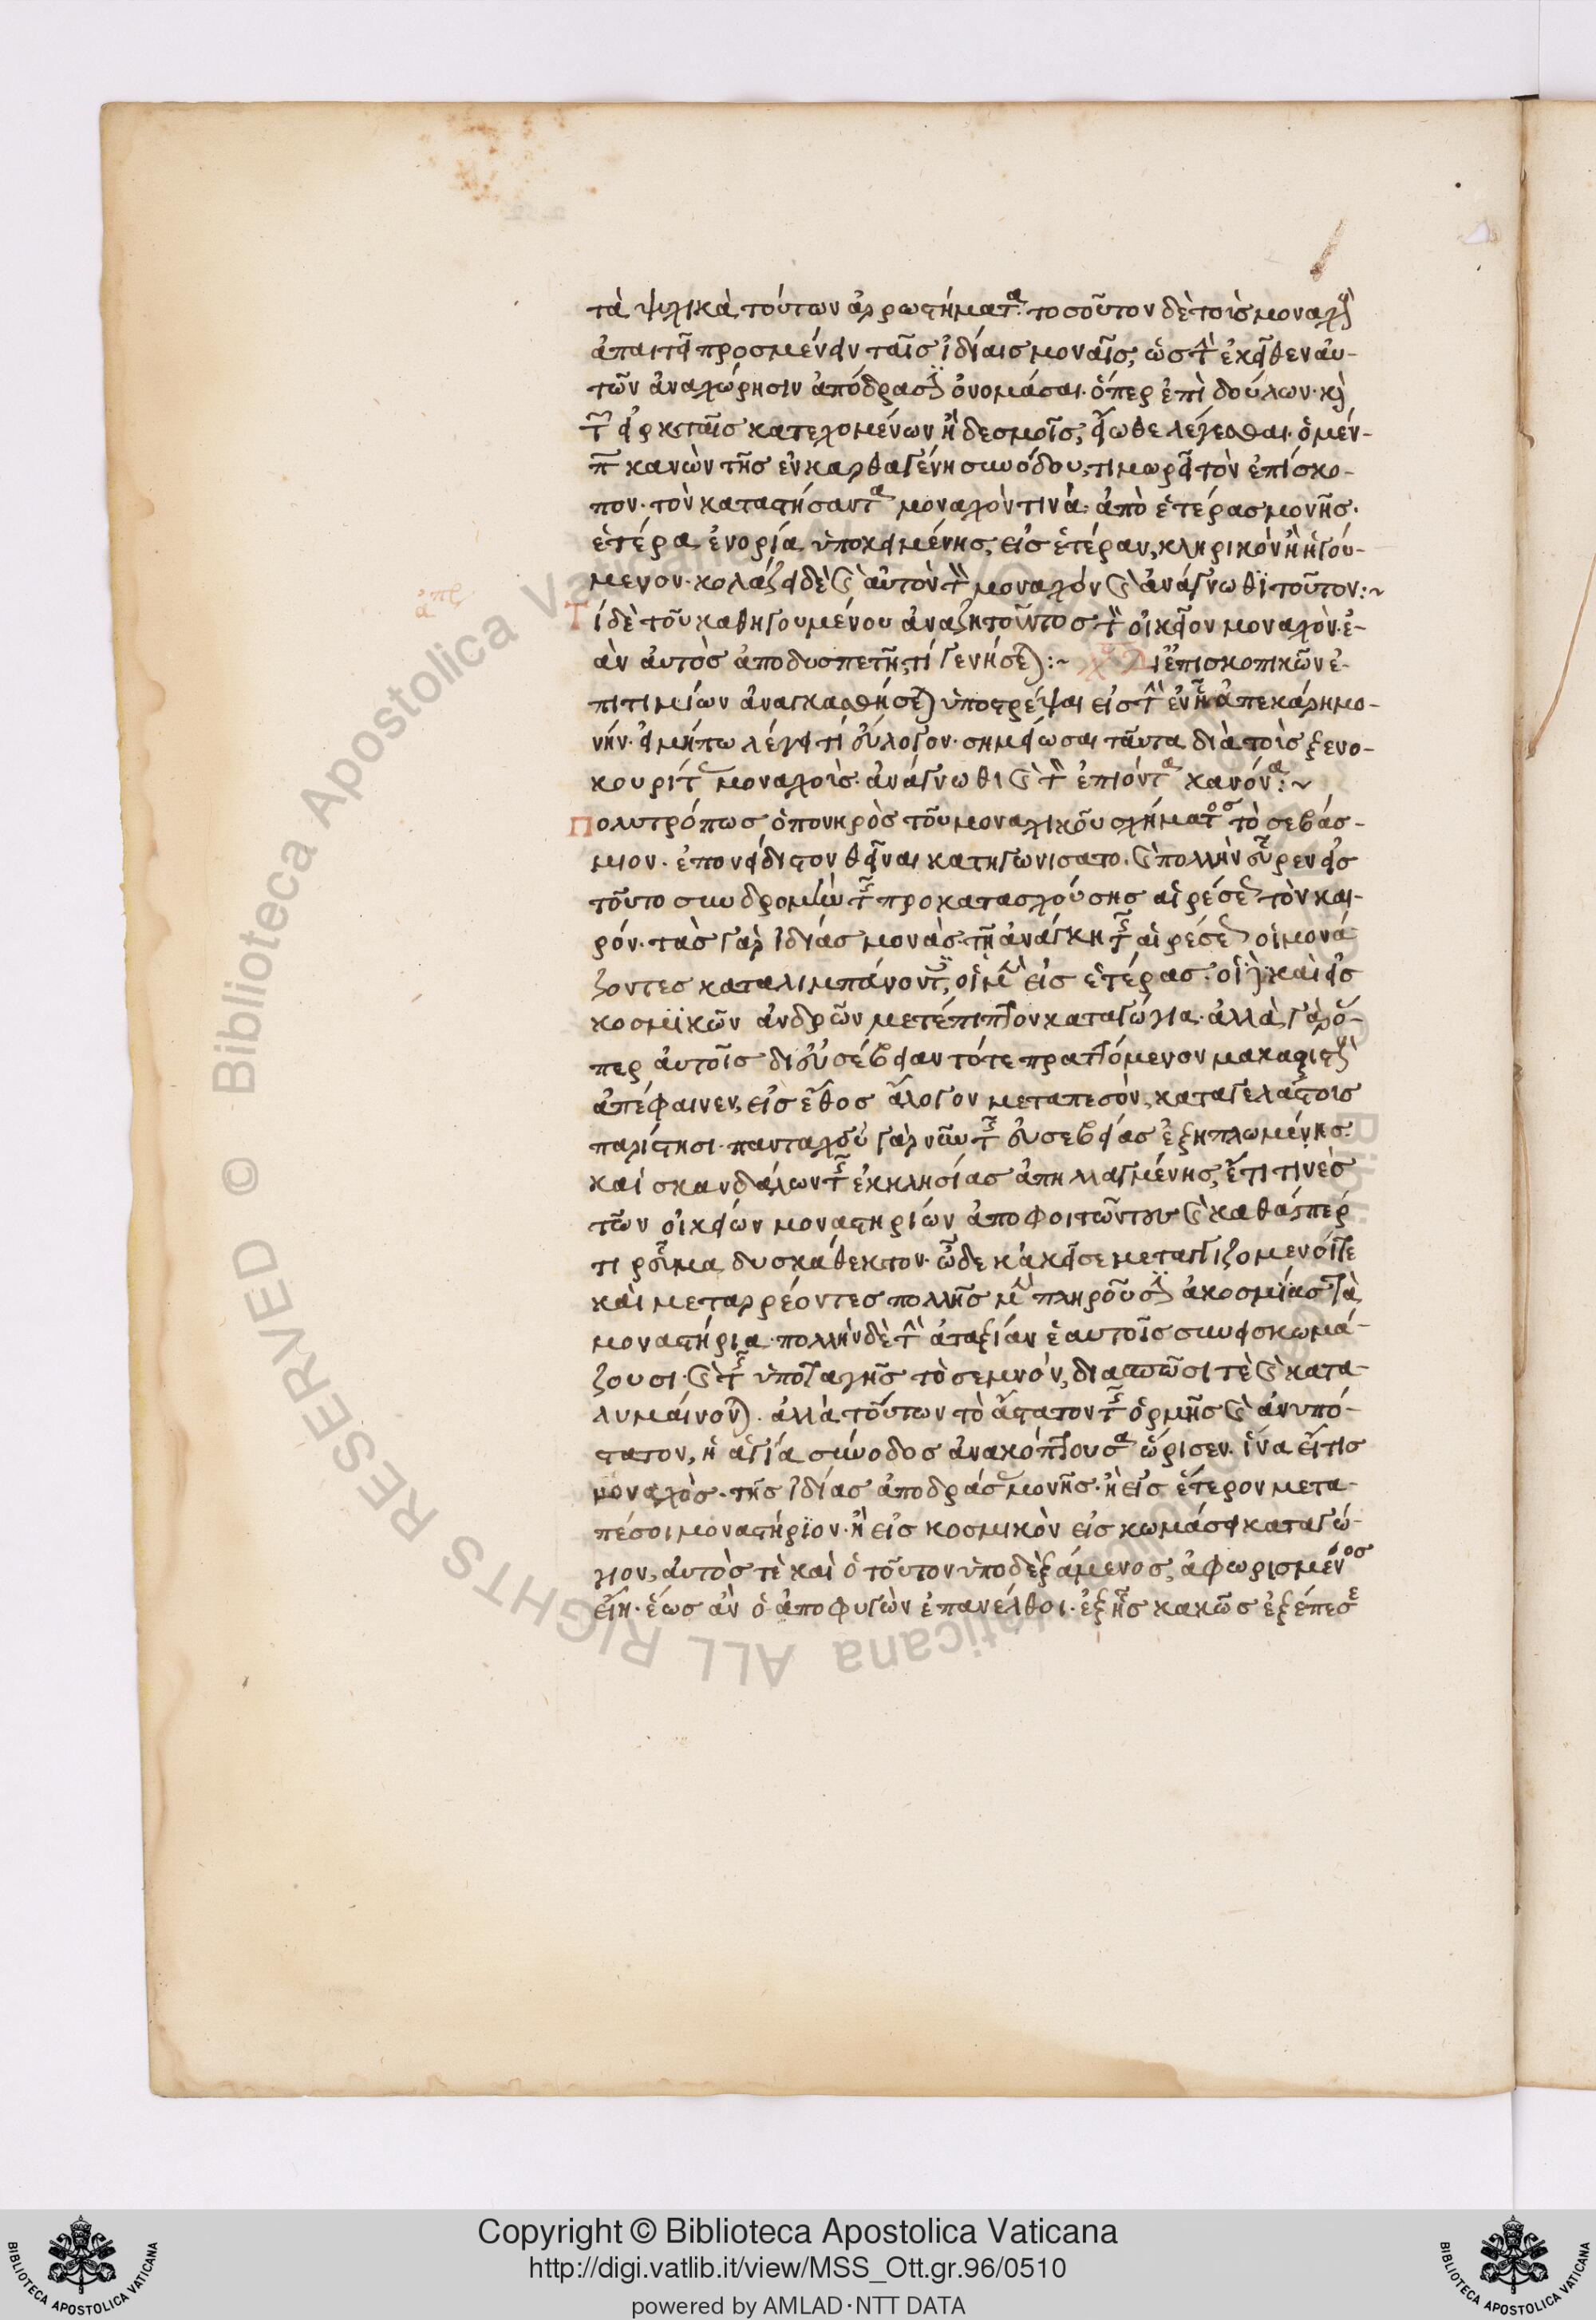 τὰ ψυχικὰ τούτων ἀρρωστήματα. τοσοῦτον δὲ τοῖς μοναχοῖς
ἀπαιτεῖ προσμένειν ταῖς ἰδίαις μοναῖς, ὥστε τὴν ἐκεῖθεν αὐ-
τῶν ἀναχώρησιν ἀπόδρασιν ὀνομάσαι. ὅπερ ἐπὶ δούλων καὶ
τῶν εἱρκταῖς κατεχομένων ἢ δεσμοῖς, εἴωθε λέγεσθαι. ὁ μέν-
π κανὼν τῆς ἐν καρθαγένη συνόδου, τιμωρεῖ τὸν ἐπίσκο-
πον. τὸν καταστήσαντα μοναχόν τινα. ἀπὸ ἑτέρας μονῆς.
ἑτέρα ἐνορία ὑποκειμένης, εἰς ἑτέραν, κληρικὸν ἢ ἡγού-
μενον. κολάζει δὲ καὶ αὐτὸν τὸν μοναχόν καὶ ἀνάγνωθι τοῦτον:~
Τί δὲ τοῦ καθηγουμένου ἀναζητοῦντος τὸν οἰκεῖον μοναχὸν. ἐ-
ὰν αὐτὸς ἀποδυσπετῇ, τί γενήσεται:~ ἐπισκοπικῶν ἐ-
πιτιμίων ἀναγκασθήσεται ὑποστρέψαι εἰς τὴν ἐν ᾗ ἀπεκάρη μο-
νήν. εἰ μήπω λέγει τί εὔλογον. σημείωσαι ταῦτα διὰ τοὺς ξενο-
κουρίτας μοναχοὺς. ἀνάγνωθι καὶ τὸν ἐπιόντα κανόνα:~
Πολυτρόπως ὁ πονηρὸς τοῦ μοναχικοῦ σχήματος τὸ σεβάσ-
μιον. ἐπονείδιστον θεῖναι κατηγωνίσατο. καὶ πολλὴν εὗρεν εἰς
τοῦτο συνδρομὴν τῆς προκατασχούσης αἱρέσεως τὸν και-
ρόν. τὰς γὰρ ἰδίας μονὰς τῇ ἀνάγκη τῆς αἱρέσεως οἱ μονά
ζοντες καταλιμπάνοντες, οἱ μὲν εἰς ἑτέρας. οἱ δὲ καὶ εἰς
κοσμικῶν ἀνδρῶν μετέπιπτον καταγώγια. ἀλλὰ γὰρ ὅ-
περ αὐτοῖς δι εὐσέβειαν τότε πραττόμενον μακαριστοὺς
ἀπέφαινεν, εἰς ἔθος ἄλογον μεταπεσὸν, καταγελάστους
παρίστησι. πανταχοῦ γὰρ νῦν τῆς εὐσεβείας ἐξηπλωμένης.
καὶ σκανδάλων τῆς ἐκκλησίας ἀπηλλαγμένης, ἔτι τινὲς
τῶν οἰκείων μοναστηρίων ἀποφοιτῶντες καὶ καθάπερ
τι ρεῦμα δυσκάθεκτον. ὧδε κἀκεῖσε μεταγγιζόμενοί τε
καὶ μεταρρέοντες πολλῆς μὲν πληροῦσιν ἀκοσμίας τὰ
μοναστήρια. πολλὴν δὲ τὴν ἀταξίαν ἑαυτοῖς συνεισκωμά-
ζουσι. καὶ τῆς ὑποταγῆς τὸ σεμνόν, διασπῶσι τὲ καὶ κατα-
λυμαίνονται. ἀλλὰ τούτων τὸ ἄστατον τῆς ὁρμῆς καὶ ἀνυπό-
τατον, ἡ ἁγία σύνοδος ἀνακόπτουσα ὥρισεν. ἵνα εἴ τις
μοναχὸς. τῆς ἰδίας ἀποδράς μονῆς. ἢ εἰς ἕτερον μετα-
πέσοι μοναστήριον. ἢ εἰς κοσμικὸν εἰσκωμάσει καταγώ-
γιον, αὐτός τὲ καὶ ὁ τοῦτον ὑποδεξάμενος, ἀφωρισμένος
εἴη. ἕως ἂν ὁ ἀποφυγὼν ἐπανέλθοι. ἐξ ἧς κακῶς ἐξέπεσε
Copyright © Biblioteca Apostolica Vaticana
http://digi.vatlib.it/view/MSS_Ott.gr.96/0510
powered by AMLAD·NTT DATA